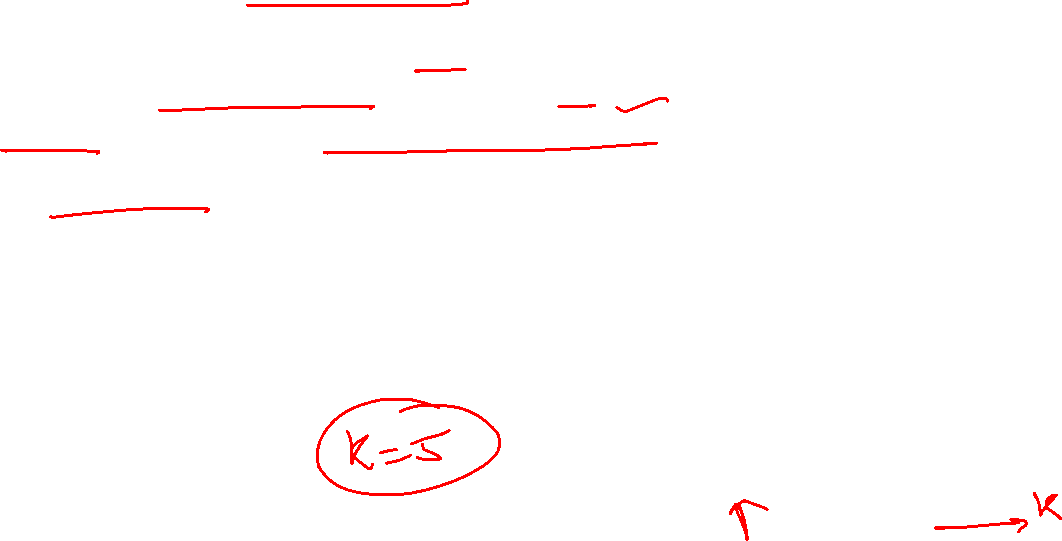 K=5
K